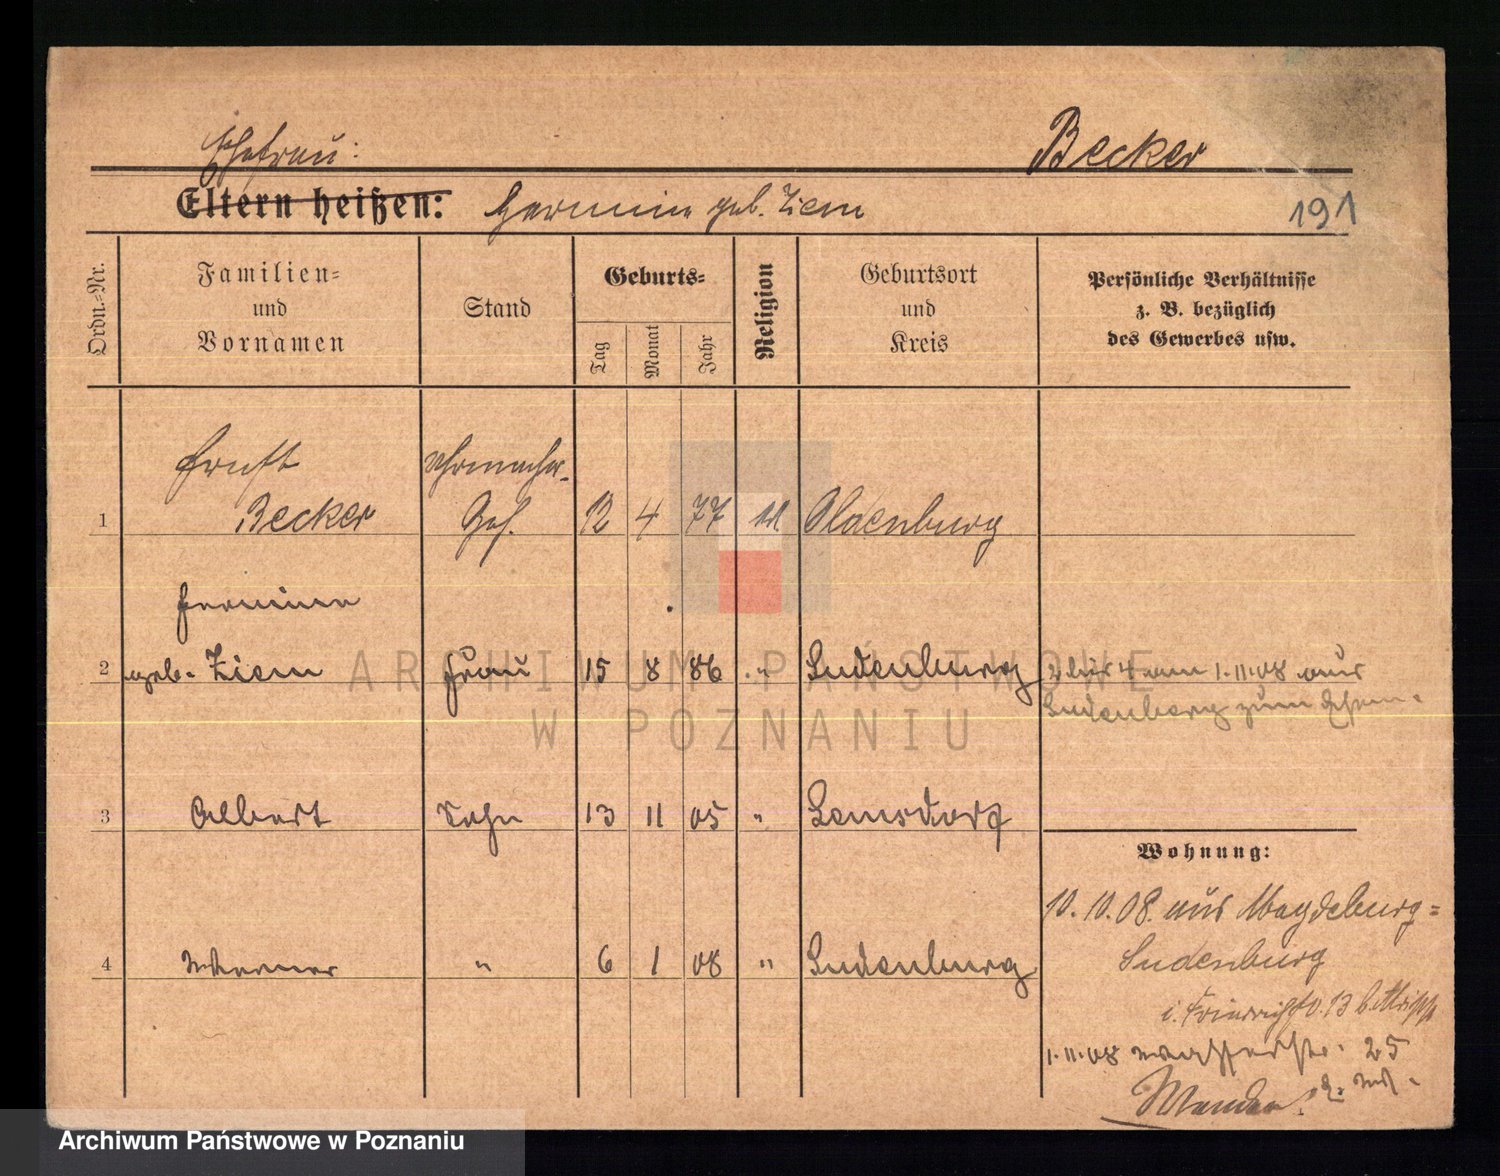 Ehefrau: Becker
Eltern heißen: Hermine geb. Ziem 191
Ordn.-Nr.
Familien-
und
Vornamen
Stand
Geburts-
Tag
Monat
Jahr
Religion
Geburtsort
und
Kreis
Persönliche Verhältnisse
z. B. bezüglich
des Gewerbes usw.
Ernst Uhrmacher-
1 Becker Geh. 12 4 77 Oldenburg
Hermine
2 geb. Ziem Frau 15 8 86 " Sudenburg 2 bis 4 am 1.11.08 aus
Sudenburg zum Ehem.
3 Albert Sohn 13 11 05 " Lemsdorf
Wohnung:
10.10.08. aus Magdeburg-
4 Werner " 6 1 08 " Sudenburg
Sudenburg
13 b.
1.11.08 25
ARCHIWUM PAŃSTWOWE
W POZNANIU
Archiwum Państwowe w Poznaniu